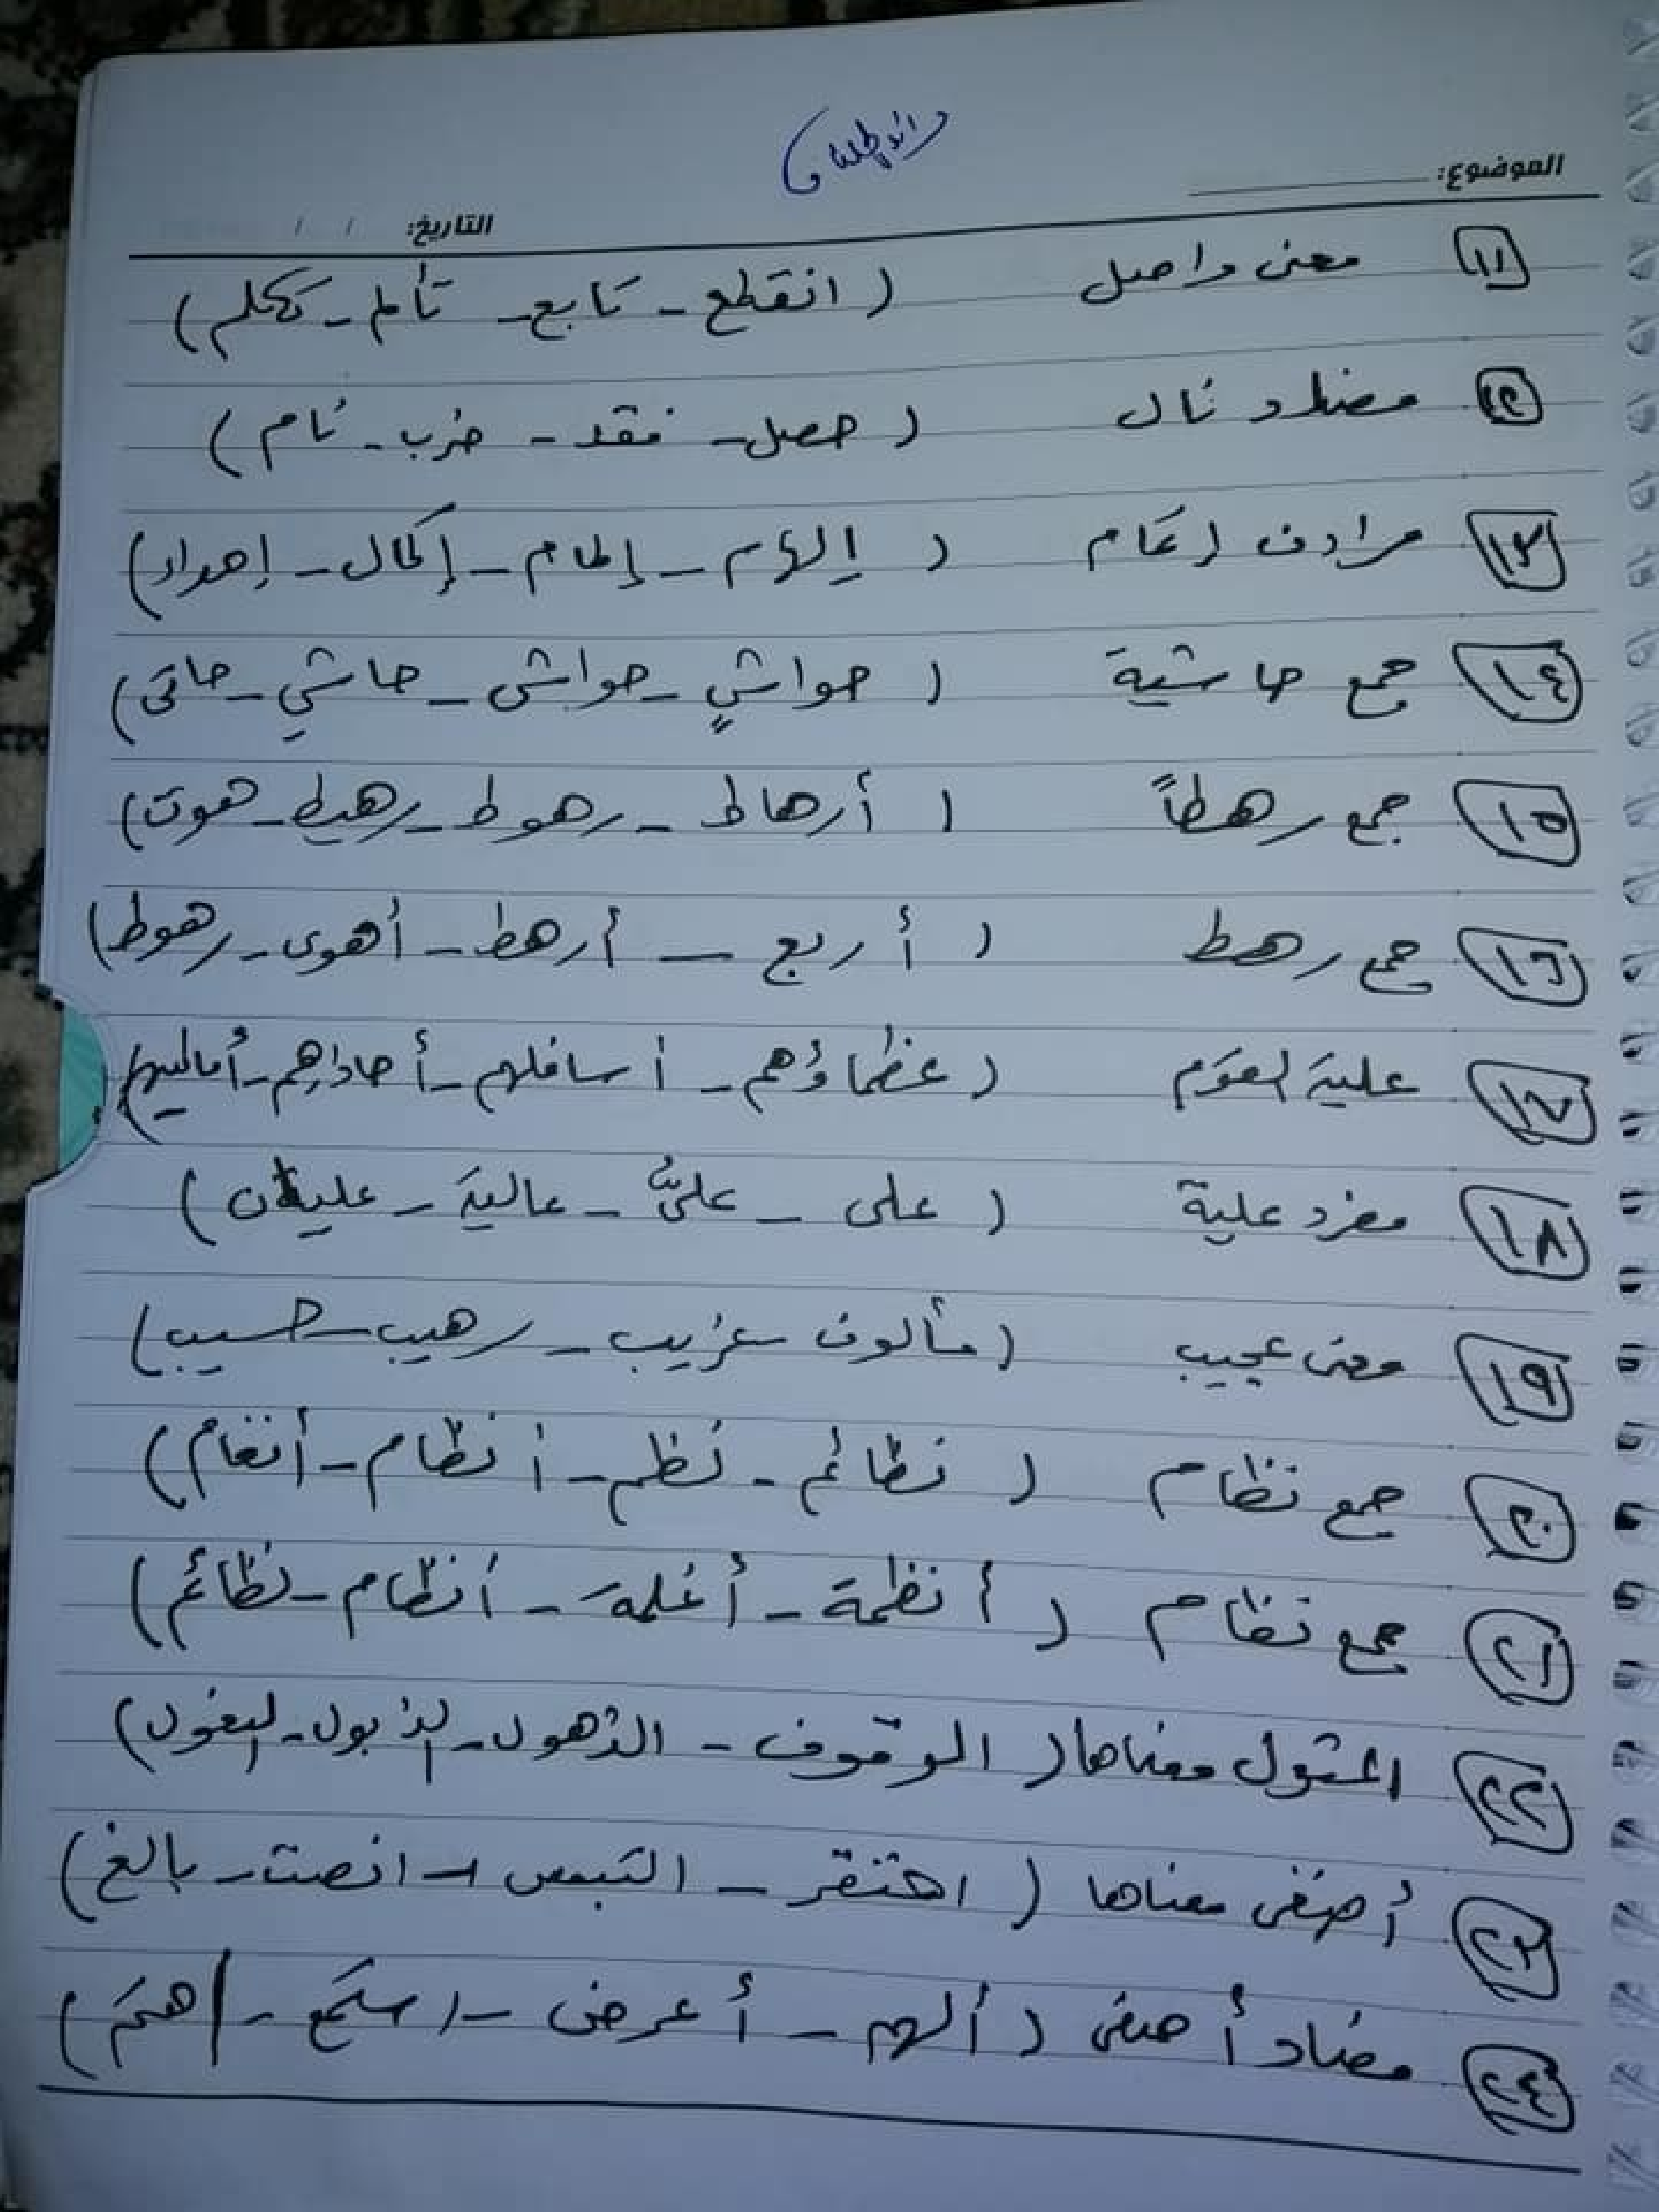 الموضوع:
التاريخ: / /
١١ معنى واصل ( انقطع - تابع - تألم - تكلم )
١٢ مضاد نال ( حصل - فقد - ضرب - نام )
١٣ مرادف إتمام ( إلهام - إلمام - إكمال - إهدار )
١٤ جمع حاشية ( حواشٍ - حواش - حاشي - حاتى )
١٥ جمع رهطاً ( أرهاط - رهوط - رهيط - هوت )
١٦ جمع رهط ( أربع - أرهط - أهوى - رهوط )
١٧ علية القوم ( عظماؤهم - أسافلهم - أحادهم - أماليهم )
١٨ مفرد علية ( على - عليٌّ - عالية - عليان )
١٩ معنى عجيب ( مألوف - غريب - رهيب - حسيب )
٢٠ جمع نظام ( نظائم - نظم - أنظام - أنغام )
٢١ جمع نظام ( أنظمة - أغلمة - أنظام - نظائم )
٢٢ المثول معناها ( الوقوف - الذهول - الذبول - الغول )
٢٣ أصغى معناها ( اهتنقر - التبس - انصت - بالغ )
٢٤ مضاد أصغى ( ألهم - أعرض - استمع - اهتم )